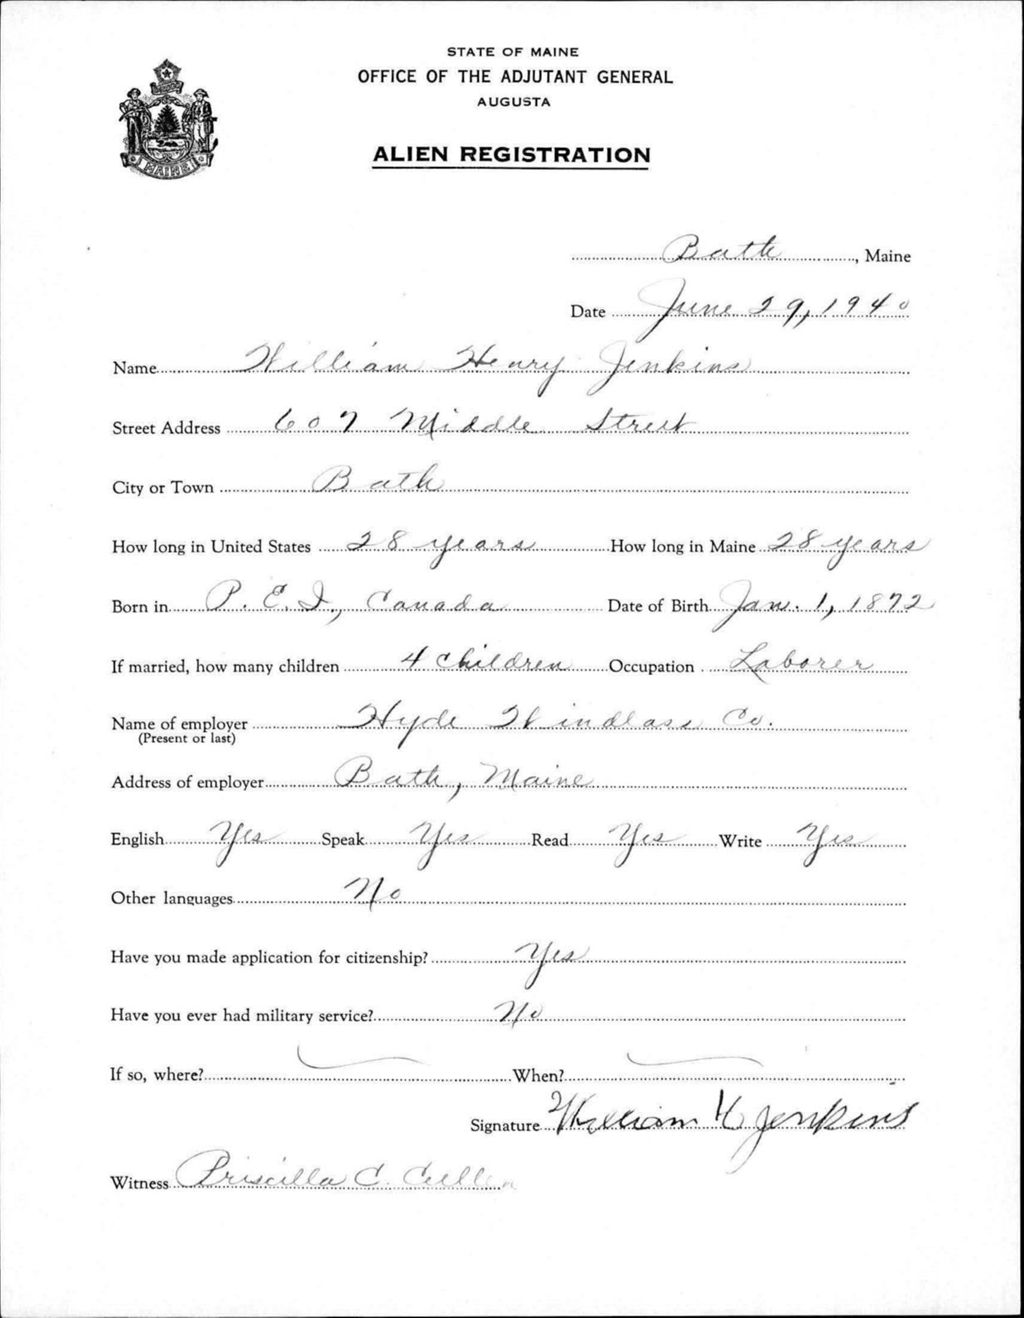 STATE OF MAINE
OFFICE OF THE ADJUTANT GENERAL
AUGUSTA
ALIEN REGISTRATION
MAINE
Bath, Maine
Date June 29, 1940
Name William Henry Jenkins
Street Address 607 Middle Street
City or Town Bath
How long in United States 28 years How long in Maine 28 years
Born in P.E.I., Canada Date of Birth Jan. 1, 1872
If married, how many children 4 children Occupation Laborer
Name of employer Hyde Windlass Co.
(Present or last)
Address of employer Bath, Maine
English Yes Speak Yes Read Yes Write Yes
Other languages No
Have you made application for citizenship? Yes
Have you ever had military service? No
If so, where? When?
Signature William H Jenkins
Witness Priscilla C. Cullen